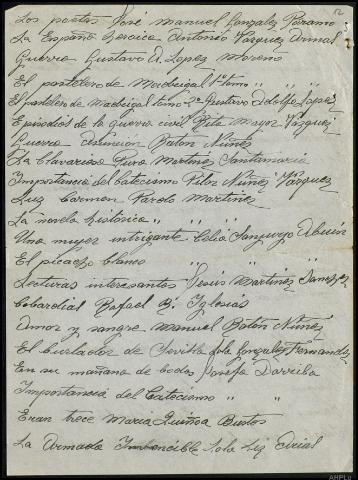 52
Los poetas José Manuel Gonzalez Paramo
La España heroica Antonio Vazquez Arnal
Guerra Gustavo A. Lopez Moreno
El pastelero de Madrigal 1º tomo " " "
El pastelero de Madrigal tomo 2º Gustavo Adolfo Lopez
Episodios de la guerra civil Rita Mayor Vazquez
Guerra Asuncion Baton Nuñez
La Clavariesa Pura Martinez Santamaria
Importancia del Catecismo Pilar Nuñez Vazquez
Luz Carmen Pardo Martinez
La novela historica " " "
Una mujer intrigante Celia Sanjurjo Abuin
El picacho blanco " " "
Lecturas interesantes Jesús Martinez
Cobardias Rafael R. Iglesias
Amor y sangre Manuel Batón Núñez
El burlador de Sevilla Lola Gonzalez Fernandez
En su mañana de bodas Josefa Darriba
Importancia del Catecismo " "
Eran trece Maria Quiñoa Bustos
La Armada Imbencible Lola Liz Arias
AHPLu